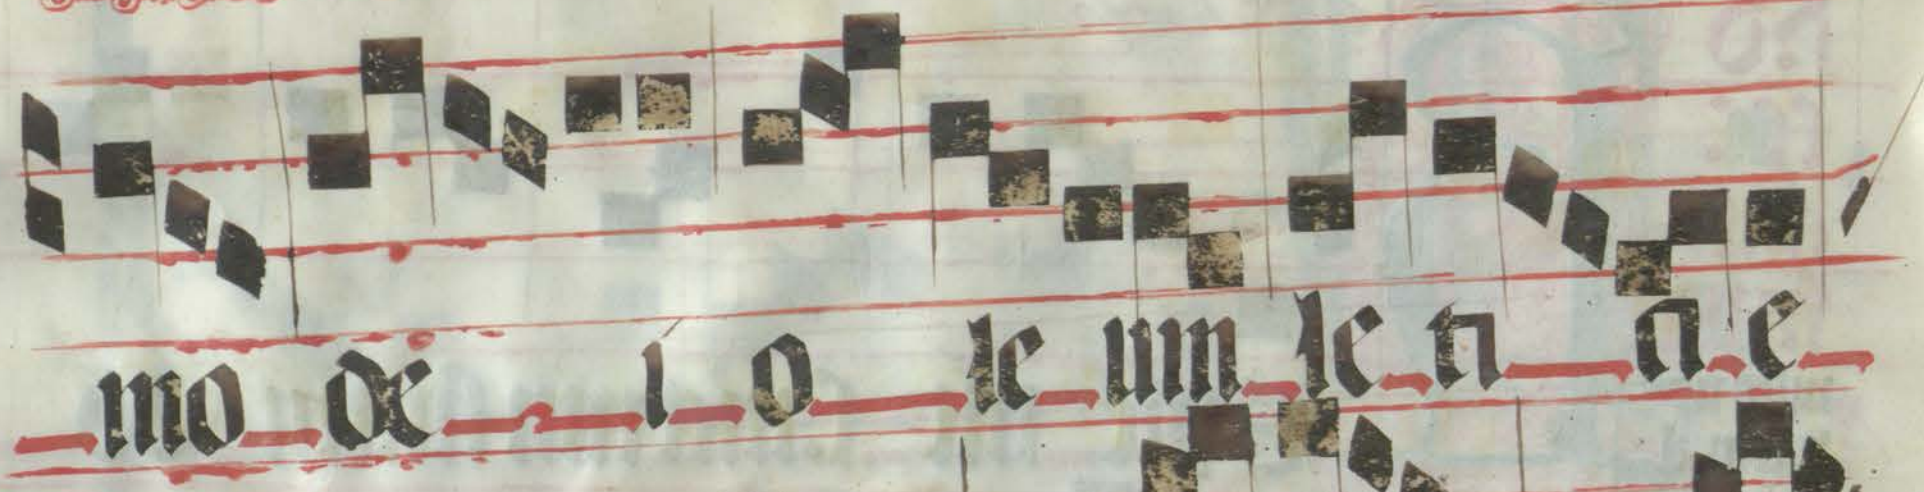 mo de i o le um le ti ti e